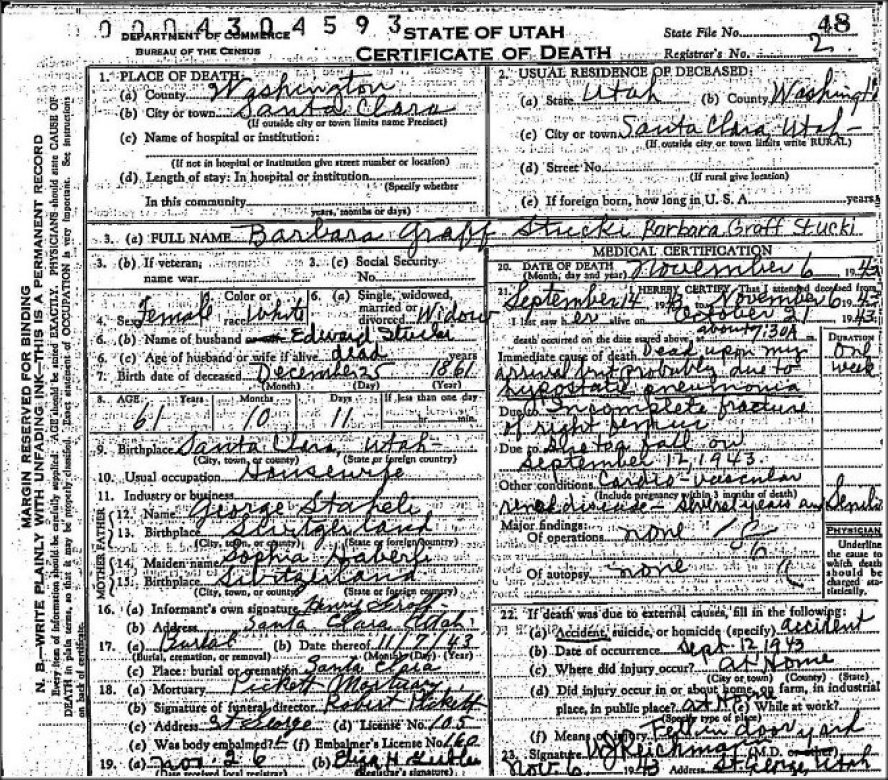 0004304593
DEPARTMENT OF COMMERCE
BUREAU OF THE CENSUS
STATE OF UTAH
CERTIFICATE OF DEATH
State File No. 48
Registrar's No. 2
MARGIN RESERVED FOR BINDING
N. B.—WRITE PLAINLY WITH UNFADING INK—THIS IS A PERMANENT RECORD
Every item of information should be carefully supplied. AGE should be stated EXACTLY. PHYSICIANS should state CAUSE OF
DEATH in plain terms, so that it may be properly classified. Exact statement of OCCUPATION is very important. See instructions
on back of certificate.
1. PLACE OF DEATH:
(a) County Washington
(b) City or town Santa Clara
(If outside city or town limits name Precinct)
(c) Name of hospital or institution:
(If not in hospital or institution give street number or location)
(d) Length of stay: In hospital or institution
(Specify whether
In this community
years, months or days)
2. USUAL RESIDENCE OF DECEASED:
(a) State Utah (b) County Washingt
(c) City or town Santa Clara, Utah
(If outside city or town limits write RURAL)
(d) Street No.
(If rural give location)
(e) If foreign born, how long in U. S. A. years
3. (a) FULL NAME Barbara Graff Stucki Barbara Graff Stucki
3. (b) If veteran, 3. (c) Social Security
name war No.
4. Sex Female Color or race White 6. (a) Single, widowed, married or divorced Widow
6. (b) Name of husband or wife Edward Stucki
6. (c) Age of husband or wife if alive dead years
7. Birth date of deceased December 25 1861
(Month) (Day) (Year)
8. AGE Years Months Days If less than one day
61 10 11 hr. min.
9. Birthplace Santa Clara Utah
(City, town, or county) (State or foreign country)
10. Usual occupation Housewife
11. Industry or business
FATHER
12. Name George Staheli
13. Birthplace Switzerland
(City, town, or county) (State or foreign country)
MOTHER
14. Maiden name Sophia
15. Birthplace Switzerland
(City, town, or county) (State or foreign country)
16. (a) Informant's own signature Henry Graff
(b) Address Santa Clara Utah
17. (a) Burial (b) Date thereof 11/7/43
(Burial, cremation, or removal) (Month) (Day) (Year)
(c) Place: burial or cremation Santa Clara
18. (a) Mortuary Pickett Mortuary
(b) Signature of funeral director Robert Pickett
(c) Address St George (d) License No. 105
(e) Was body embalmed? (f) Embalmer's License No. 160
19. (a) Nov. 26 (b) Eliza H.
(Date received local registrar) (Registrar's signature)
MEDICAL CERTIFICATION
20. DATE OF DEATH
(Month, day and year) November 6 1943
21. I HEREBY CERTIFY, That I attended deceased from
September 14 1943 to November 6 1943
I last saw her alive on October 21 1943
death occurred on the date stated above at about 7:30A m.
DURATION
Immediate cause of death Dead upon my
arrival but probably due to
hypostatic pneumonia
One week
Due to Incomplete fracture
of right femur
Due to a fall on
September 12, 1943.
Other conditions Cardio-vascular
(Include pregnancy within 3 months of death)
renal disease - several years and
Major findings:
Of operations none
Of autopsy none
PHYSICIAN
Underline the cause to which death should be charged statistically.
22. If death was due to external causes, fill in the following:
(a) Accident, suicide, or homicide (specify) accident
(b) Date of occurrence Sept 12 1943
(c) Where did injury occur? at Home
(City or town) (County) (State)
(d) Did injury occur in or about home, on farm, in industrial
place, in public place? at Home (e) While at work?
(Specify type of place)
(f) Means of injury Fell in dooryard
23. Signature Reichman (M.D. or other)
Nov. 6 1943 Address St George Utah